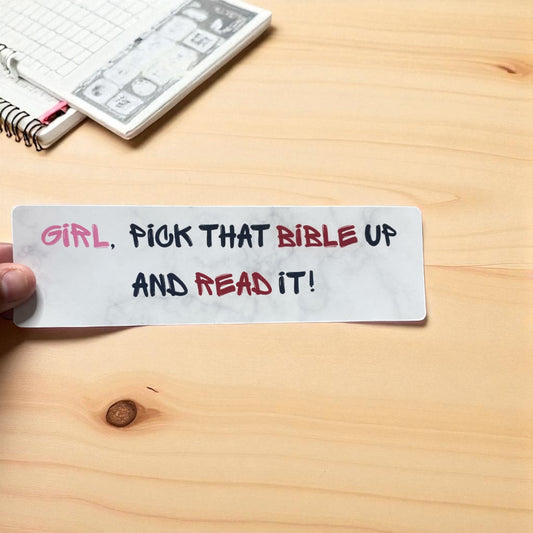 GIRL, PICK THAT BIBLE UP
AND READ IT!